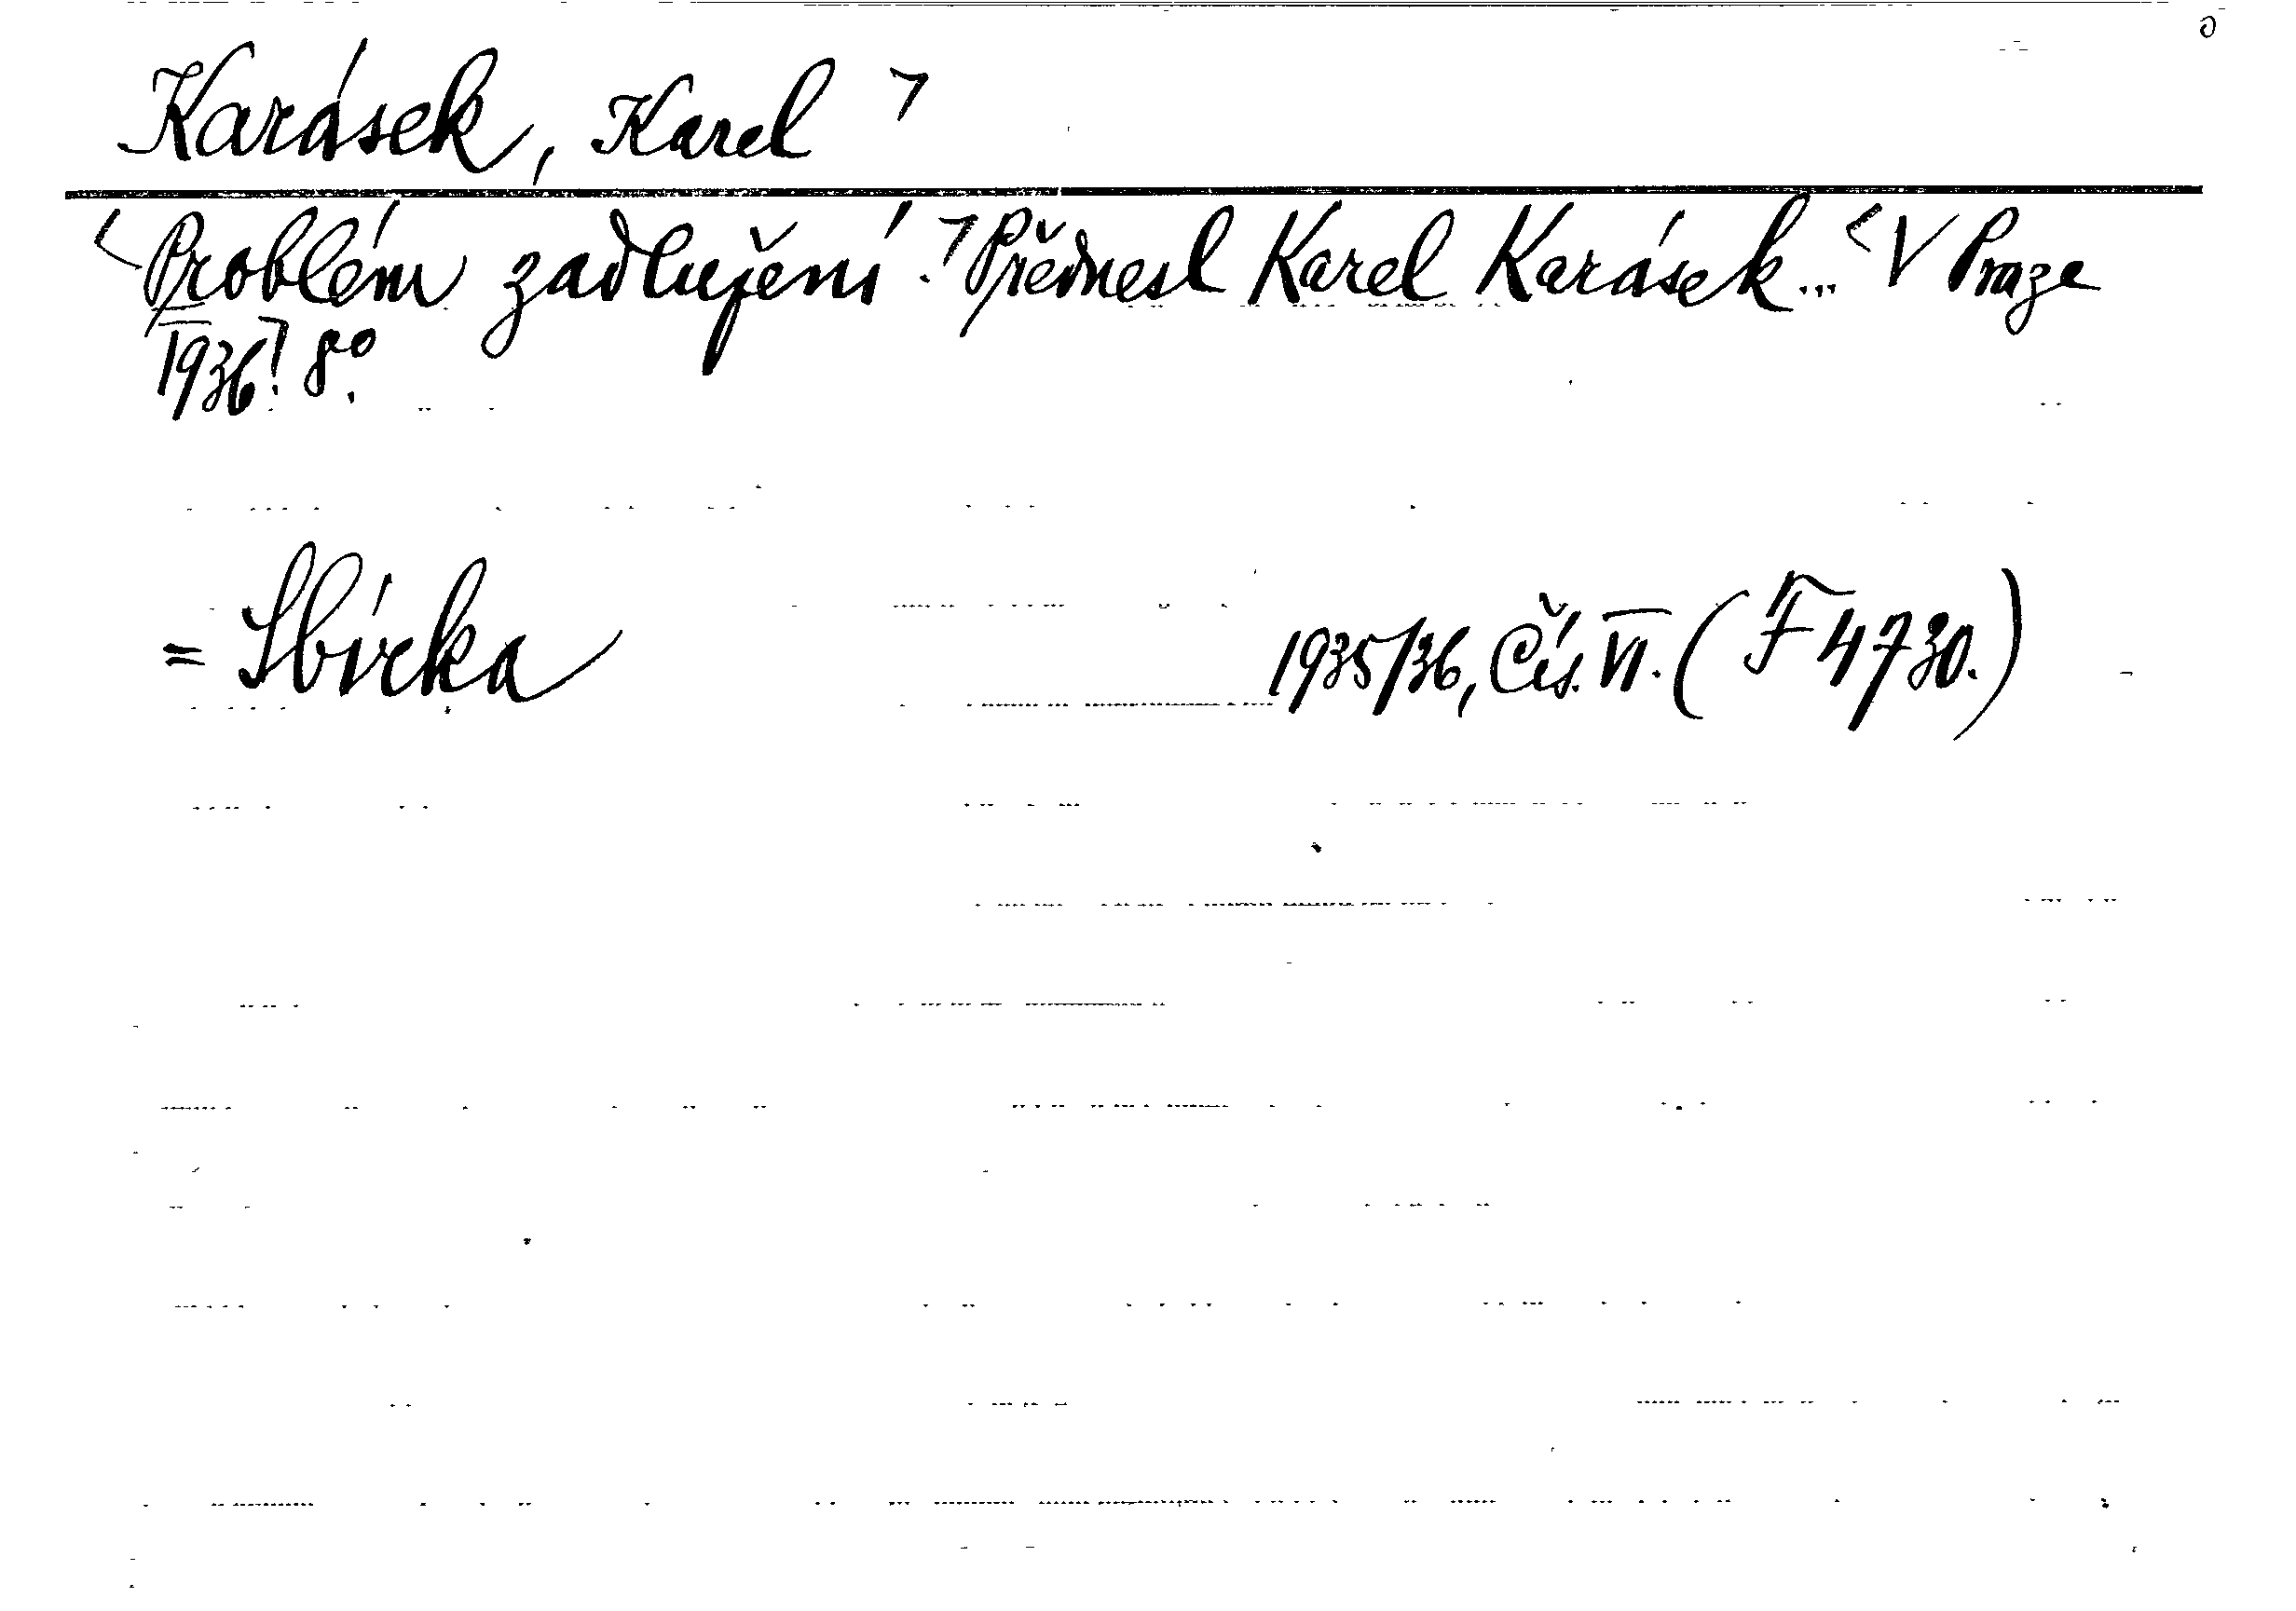 Karásek, Karel ⌝
<Problém zadlužení.⌝ Přednesl Karel Karásek... <V Praze
1936⌝. 8°.
= Sbírka 1935/36, Čís. VI. (F 4730.)